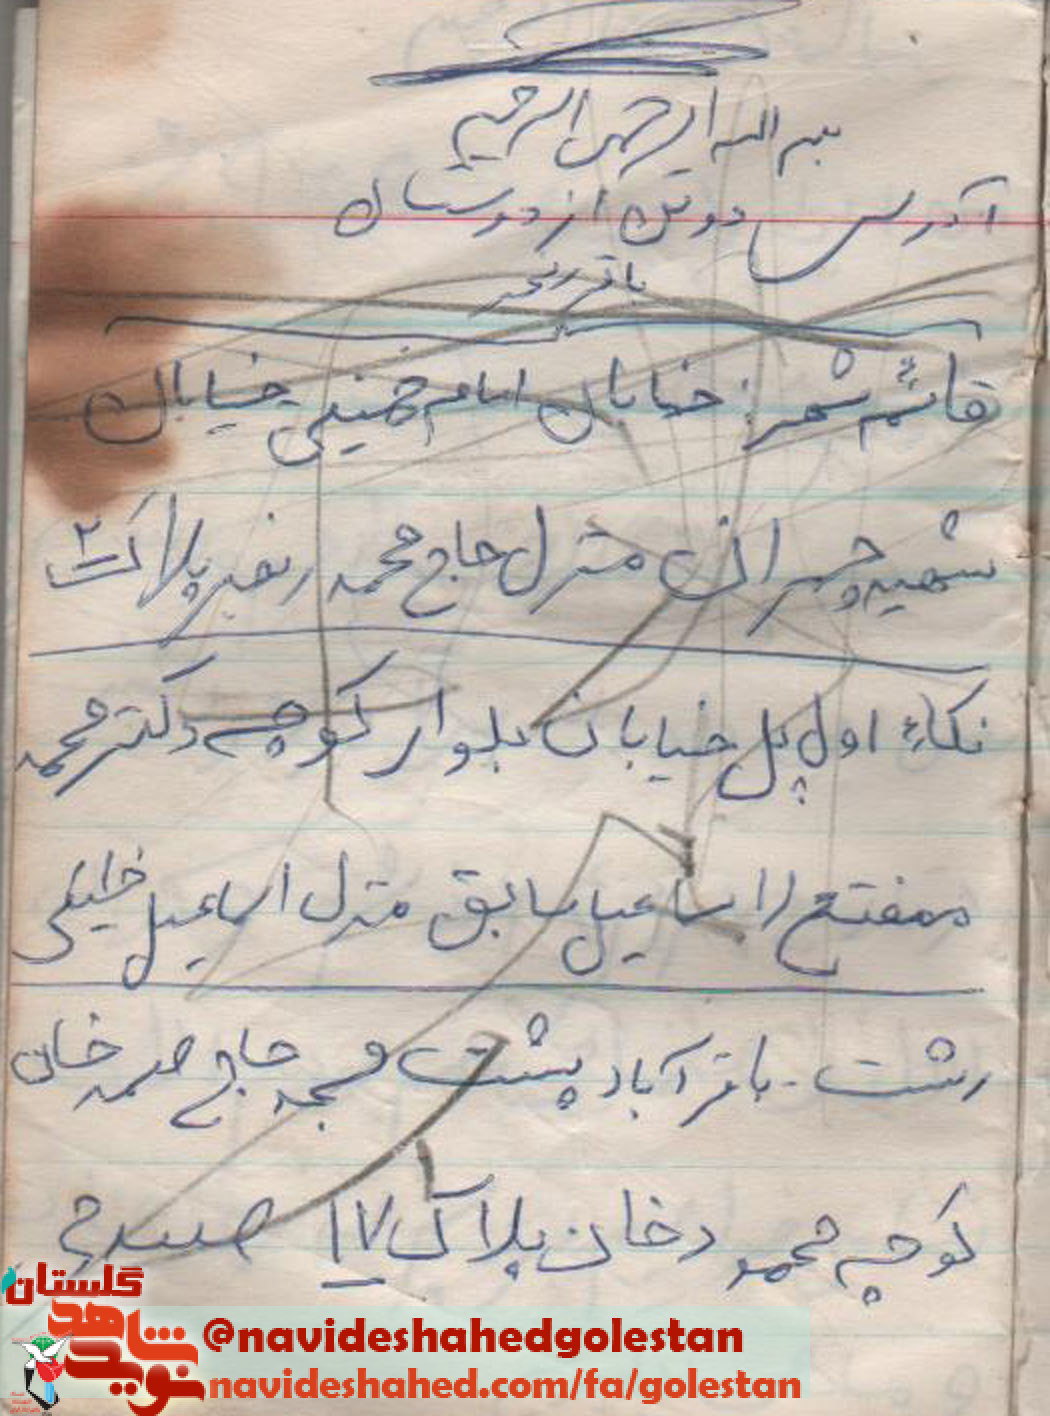 بسم الله الرحمن الرحیم
آدرس دوتن از دوستان
باقر
قائم شهر: خیابان امام خمینی خیابان
شهید چمرانی منزل حاج محمد پلاک ۲
نکاء اول پل خیابان بلوار کوچه دکتر محمد
مفتح اسماعیل سابق منزل اسماعیل
رشت - باقر آباد پشت مسجد حاج صمد خان
کوچه محمود خان پلاک ۱۷
گلستان
نوید شاهد
@navideshahedgolestan
navideshahed.com/fa/golestan